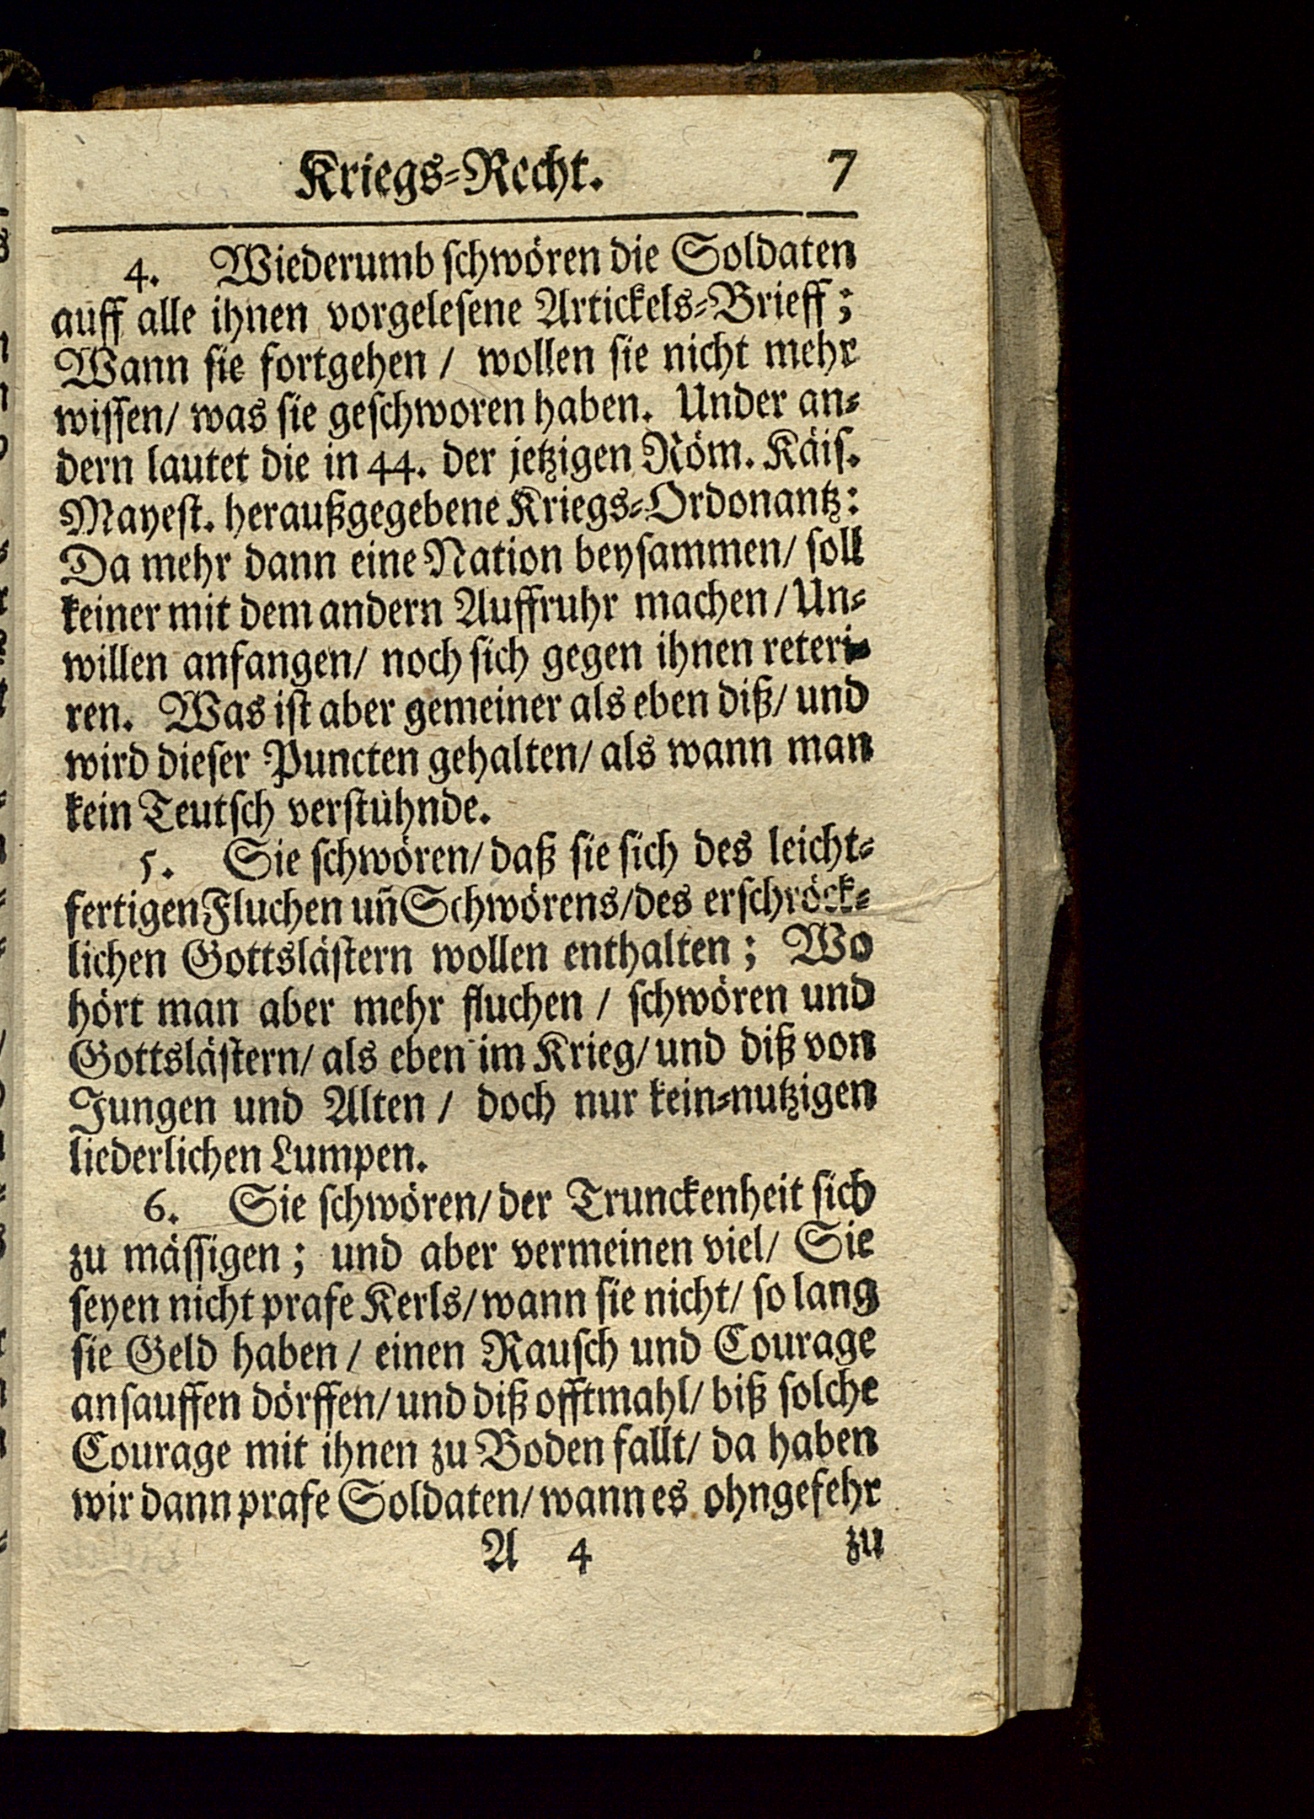 Kriegs-Recht. 7
4. Wiederumb schwören die Soldaten
auff alle ihnen vorgelesene Artickels-Brieff;
Wann sie fortgehen / wollen sie nicht mehr
wissen/ was sie geschworen haben. Under an-
dern lautet die in 44. der jetzigen Röm. Käis.
Mayest. heraußgegebene Kriegs-Ordonantz:
Da mehr dann eine Nation beysammen/ soll
keiner mit dem andern Auffruhr machen / Un-
willen anfangen/ noch sich gegen ihnen reteri-
ren. Was ist aber gemeiner als eben diß/ und
wird dieser Puncten gehalten/ als wann man
kein Teutsch verstühnde.
5. Sie schwören/ daß sie sich des leicht-
fertigen Fluchen uñ Schwörens/des erschröck-
lichen Gottslästern wollen enthalten; Wo
hört man aber mehr fluchen / schwören und
Gottslästern/ als eben im Krieg/ und diß von
Jungen und Alten / doch nur kein-nutzigen
liederlichen Lumpen.
6. Sie schwören/ der Trunckenheit sich
zu mässigen; und aber vermeinen viel/ Sie
seyen nicht prafe Kerls/ wann sie nicht/ so lang
sie Geld haben / einen Rausch und Courage
ansauffen dörffen/ und diß offtmahl/ biß solche
Courage mit ihnen zu Boden fallt/ da haben
wir dann prafe Soldaten/ wann es ohngefehr
A 4 zu